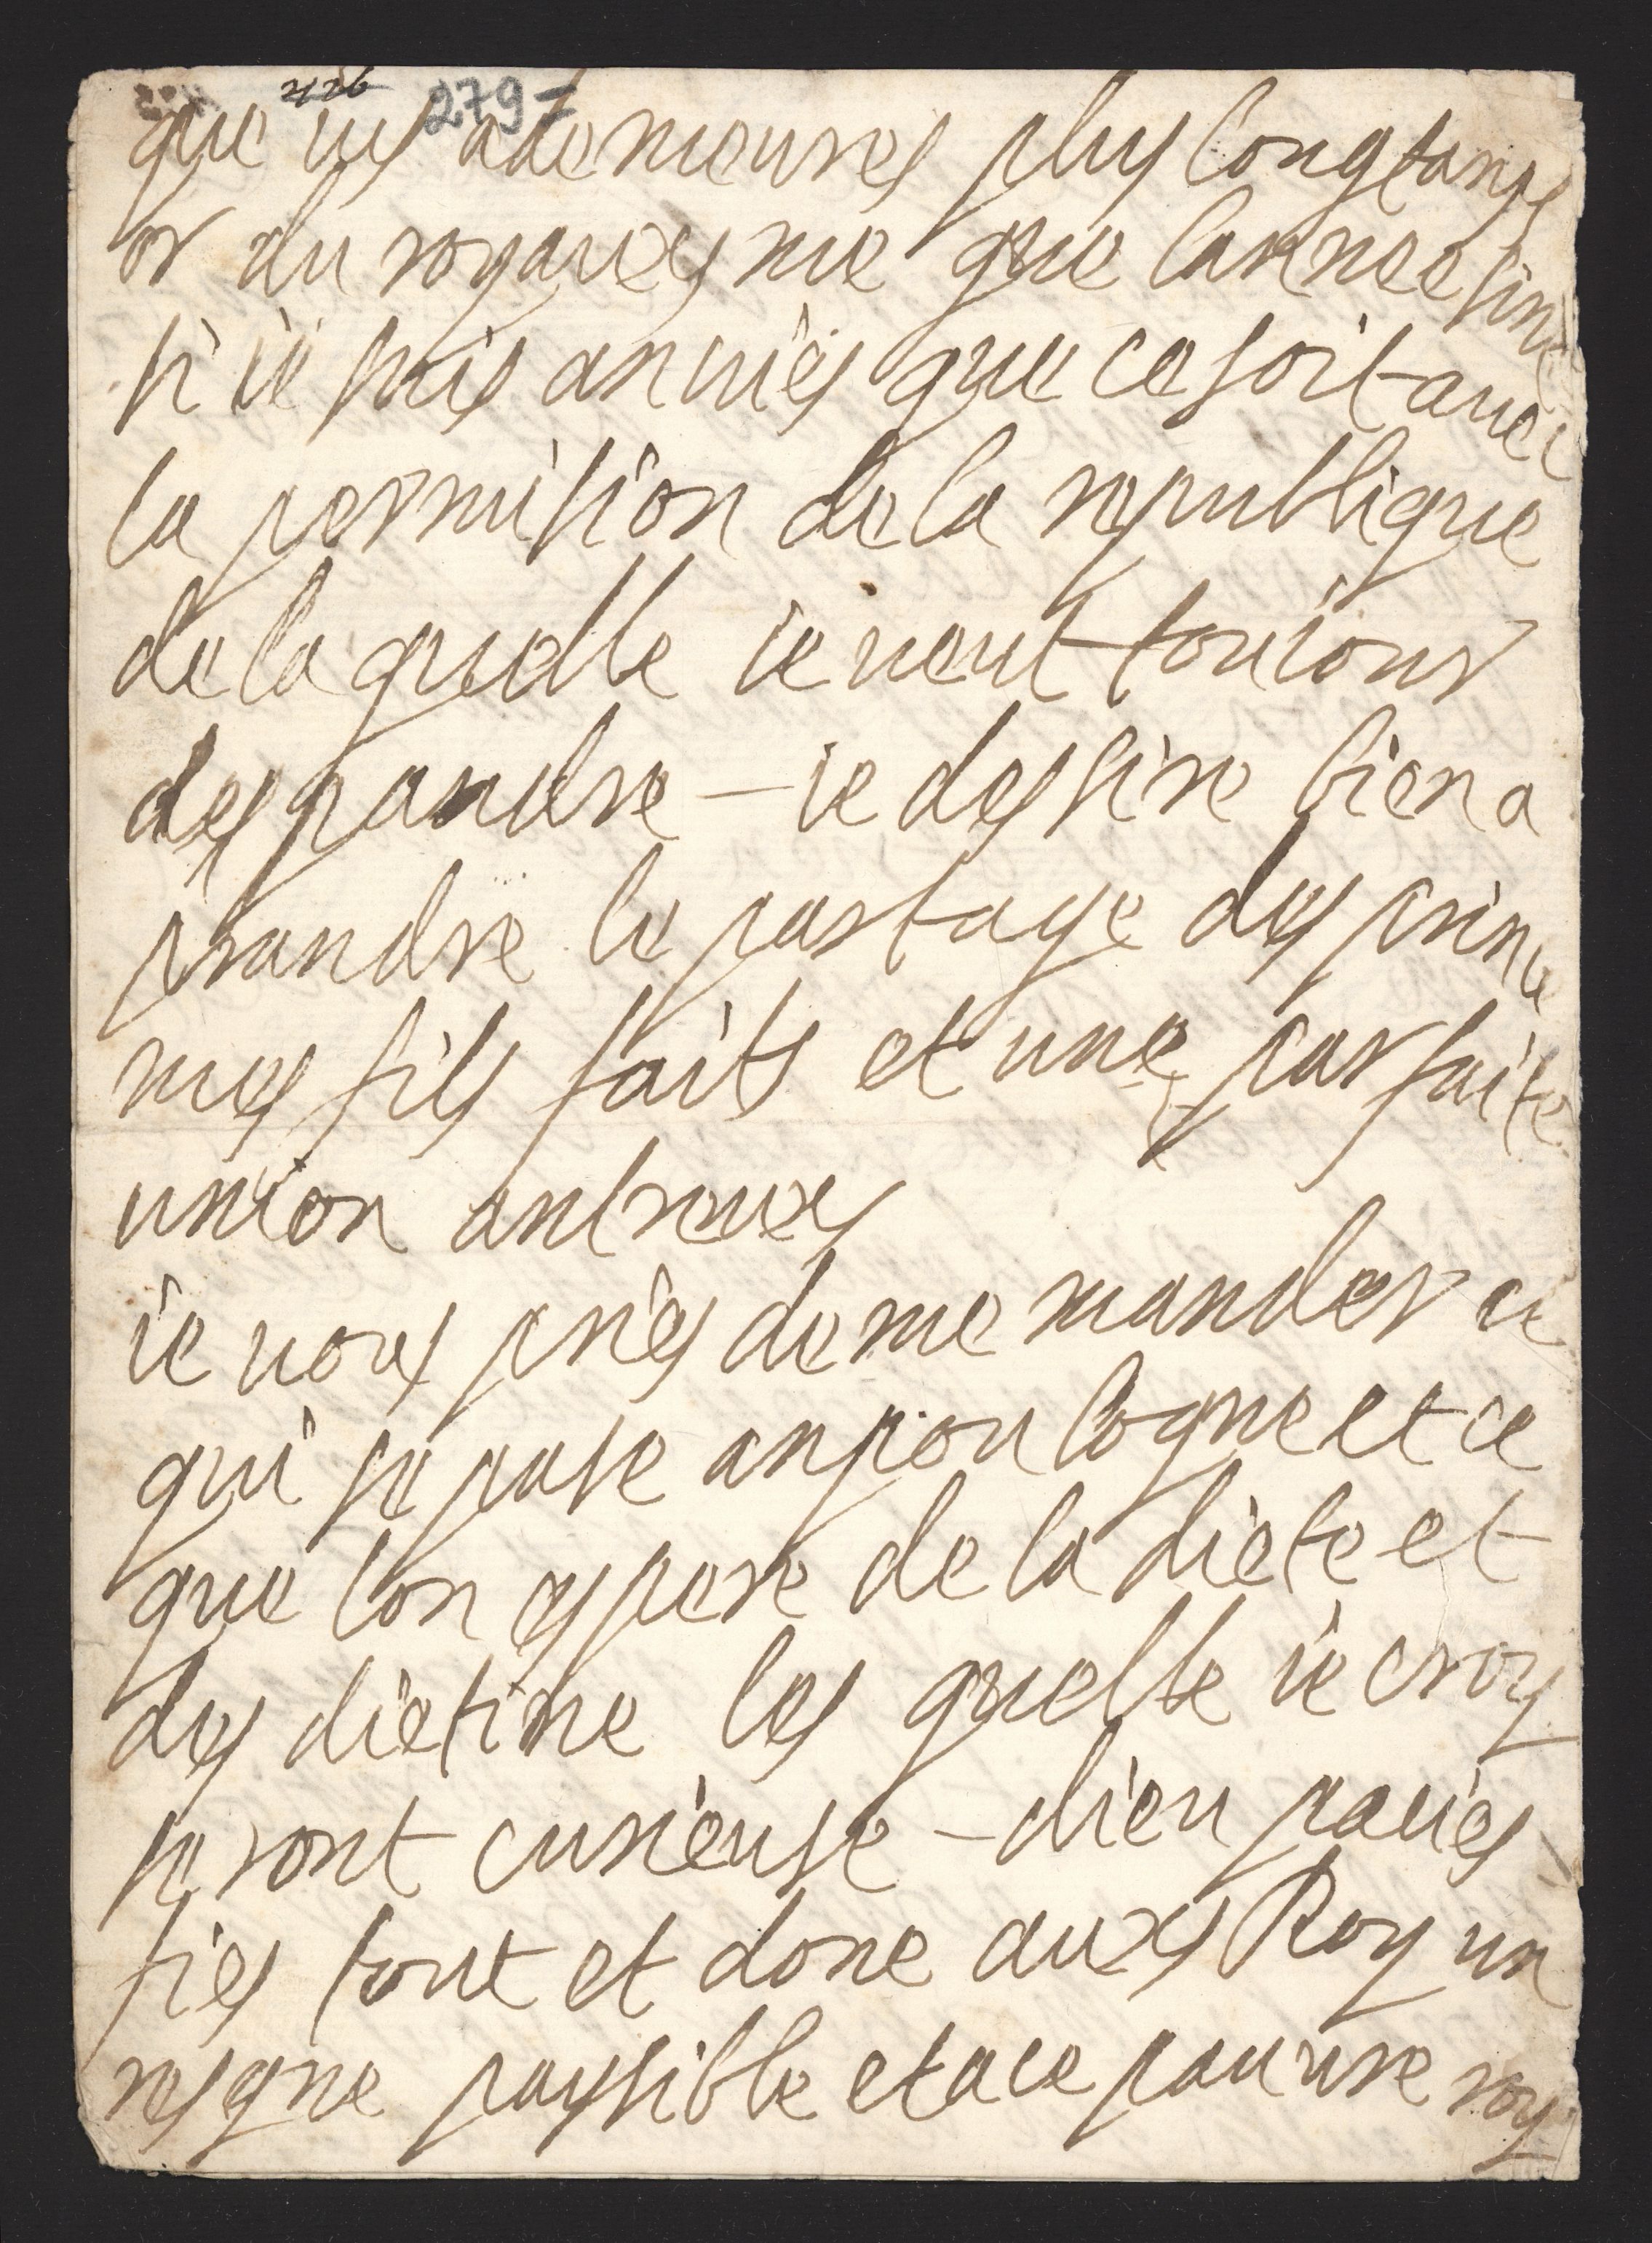 2126 279-
que ies ademeures plus longtams
or du royaueys me que lannee fini
si ie suis anvies que ce soit avec
la permision de la republique
de la quelle ie veut touiour
despandre — ie dessire bien a
prandre le partage des prince
mes fils faits et une parfaite
union antreuxs
ie vous pries de me mander ce
qui se pase anpoulogne et ce
que lon espere de la diete et
des dietine les quelle ie croy
seront curieuse — dieu pasies
fies tout et done auxs Roy un
resgne paysible et a ce pauvre roy